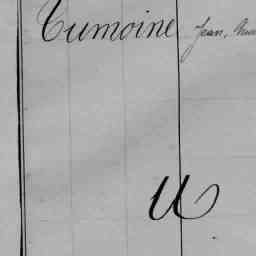 Tumoine Jean,
U